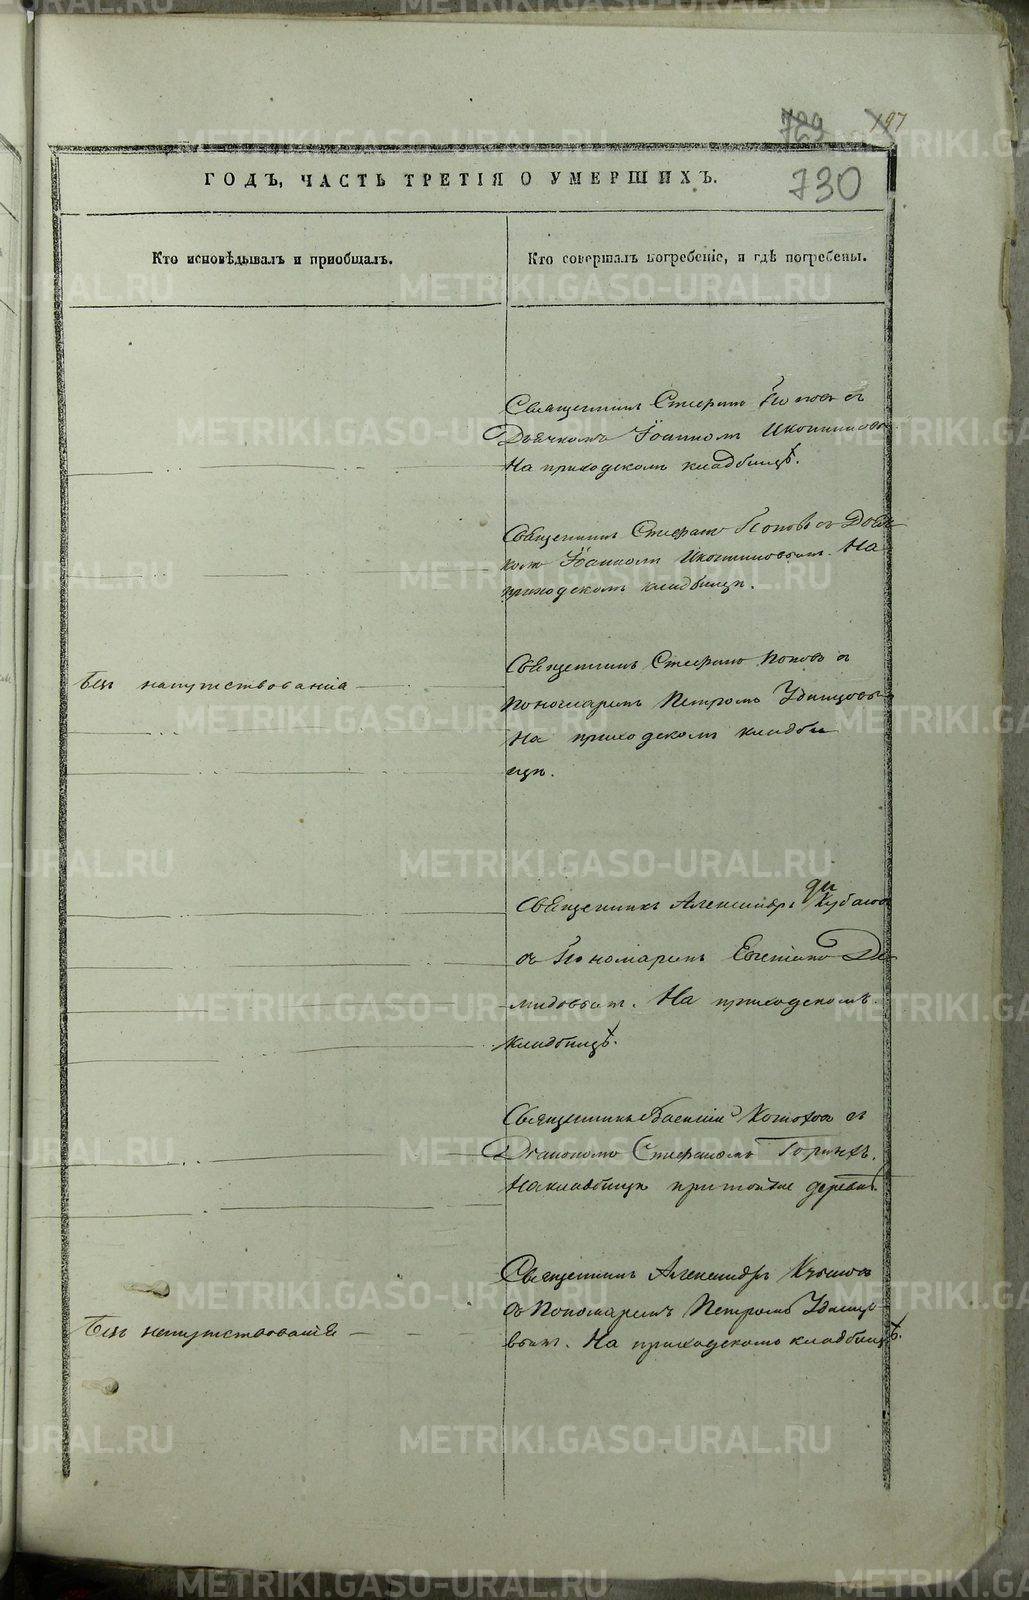 729 197
730
ГОДЪ, ЧАСТЬ ТРЕТІЯ О УМЕРШИХЪ.
Кто исповѣдывалъ и пріобщалъ.
Кто совершалъ погребеніе, и гдѣ погребены.
Священникъ Стефанъ Поповъ съ
Дьячкомъ Іоанномъ
На приходскомъ кладбищѣ.
Священникъ Стефанъ Поповъ съ Дьяч
комъ Іоанномъ На
приходскомъ кладбищѣ.
Безъ напутствованія
Священникъ Стефанъ Поповъ съ
Пономаремъ Петромъ Удинцовы
На приходскомъ кладби
щѣ.
Священникъ Александръ
съ Пономаремъ Евгеніемъ Де
мидовымъ. На приходскомъ
кладбищѣ.
Священникъ Василій съ
Діакономъ Стефаномъ
На кладбищѣ при той же деревнѣ.
Безъ напутствованія
Священникъ Александръ
съ Пономаремъ Петромъ Удинцо
вымъ. На приходскомъ кладбищѣ.
METRIKI.GASO-URAL.RU